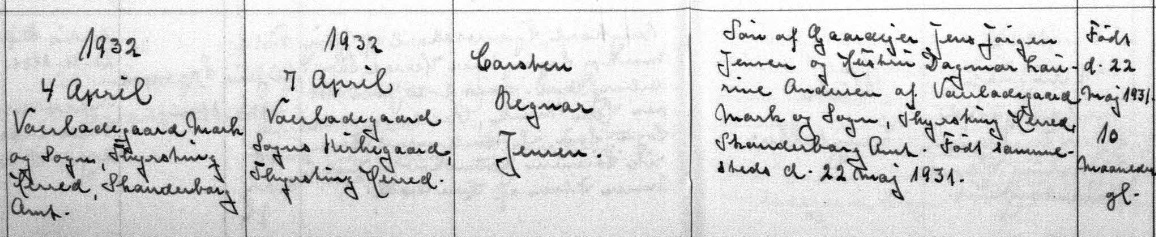 1932
4 April
Vaerladegaard Mark
og Sogn, Thyrsting
Herred, Skanderborg
Amt.
1932
7 April
Vaerladegaard
Sogns Kirkegaard,
Thyrsting Herred.
Carsten
Regnar
Jensen.
Søn af Gaardejer Jens Jørgen
Jensen og Hustru Dagmar Lau-
rine Andersen af Vaerladegaard
Mark og Sogn, Thyrsting Herred,
Skanderborg Amt. Født samme-
steds d. 22 Maj 1931.
Født
d. 22
Maj 1931.
10
Maaneder
gl.